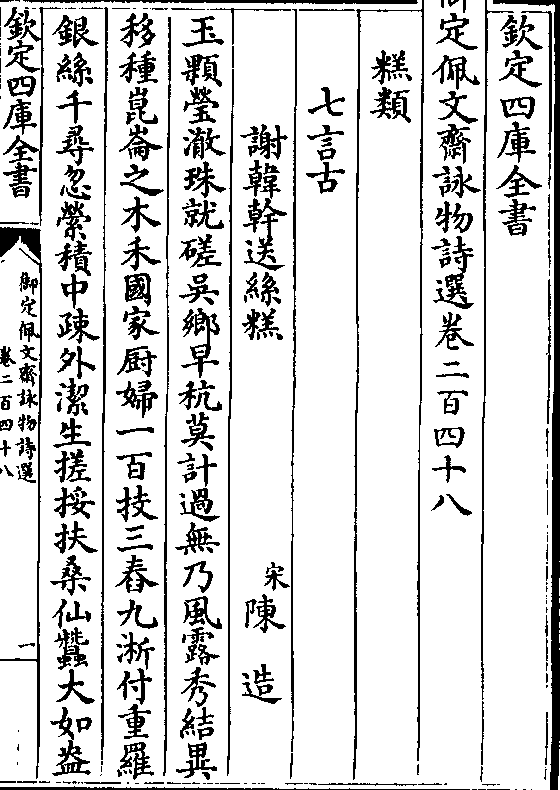 欽定四庫全書
御定佩文齋詠物詩選卷二百四十八
糕類
七言古
謝韓幹送絲糕
宋
陳造
玉顆瑩澈珠就磋吳鄉早秔莫計過無乃風露秀結異
移種崑崙之木禾國家厨婦一百技三舂九淅付重羅
銀絲千尋忽縈積中疎外潔生搓挼扶桑仙蠶大如盎
欽定四庫全書
御定佩文齋詠物詩選
卷二百四十八
一